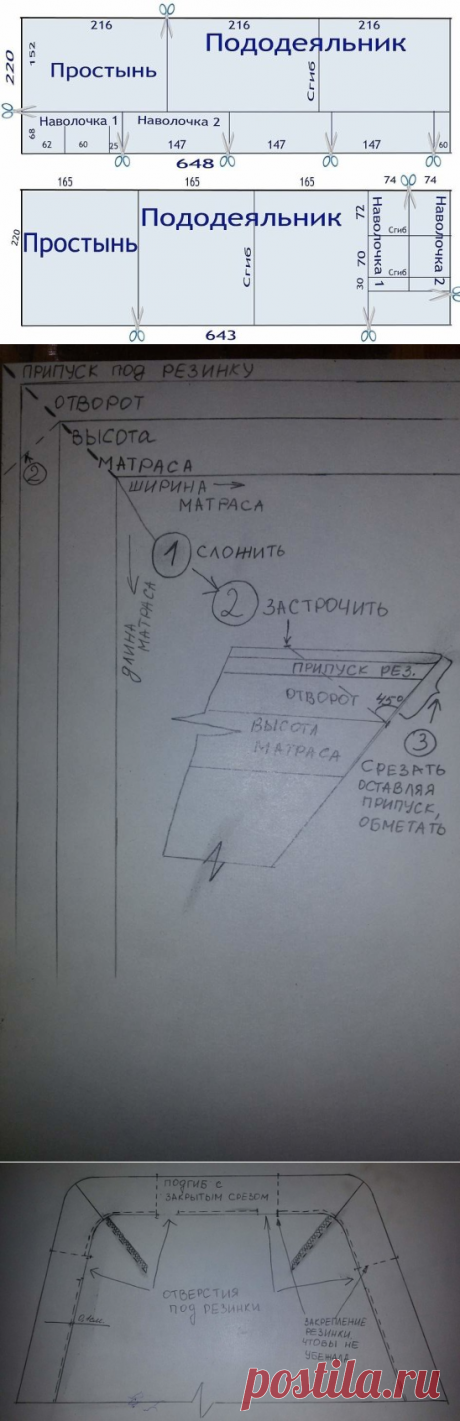 216 216 216
220
152
Простынь
Пододеяльник
Сгиб
Наволочка 1
Наволочка 2
68
62 60 25
147 147 147 60
648
165 165 165 74 74
220
Простынь
Пододеяльник
Сгиб
72
70
30
Наволочка 1
Наволочка 2
Сгиб
Сгиб
643
ПРИПУСК ПОД РЕЗИНКУ
ОТВОРОТ
ВЫСОТА
МАТРАСА
2
ШИРИНА
МАТРАСА
ДЛИНА
МАТРАСА
1 СЛОЖИТЬ
2 ЗАСТРОЧИТЬ
ПРИПУСК РЕЗ.
ОТВОРОТ
45°
ВЫСОТА
МАТРАСА
3
СРЕЗАТЬ
ОСТАВЛЯЯ
ПРИПУСК,
ОБМЕТАТЬ
ПОДГИБ С
ЗАКРЫТЫМ СРЕЗОМ
ОТВЕРСТИЯ
ПОД РЕЗИНКИ
ЗАКРЕПЛЕНИЕ
РЕЗИНКИ
ЧТОБЫ НЕ
УБЕЖАЛА
postila.ru